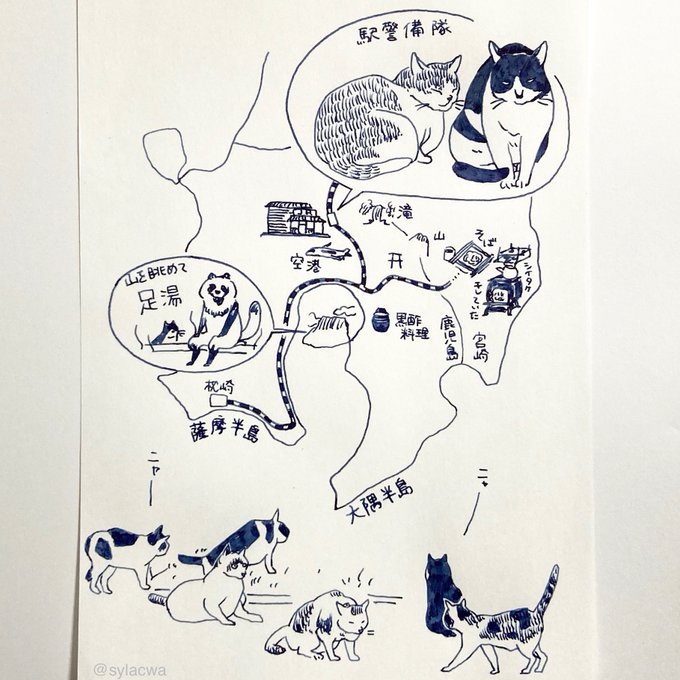 駅警備隊
滝
山
そば
シイタケ
干していた
空港
开
山を眺めて
足湯
黒酢
料理
鹿児島
宮崎
枕崎
薩摩半島
大隅半島
ニャー
ニャ
@sylacwa